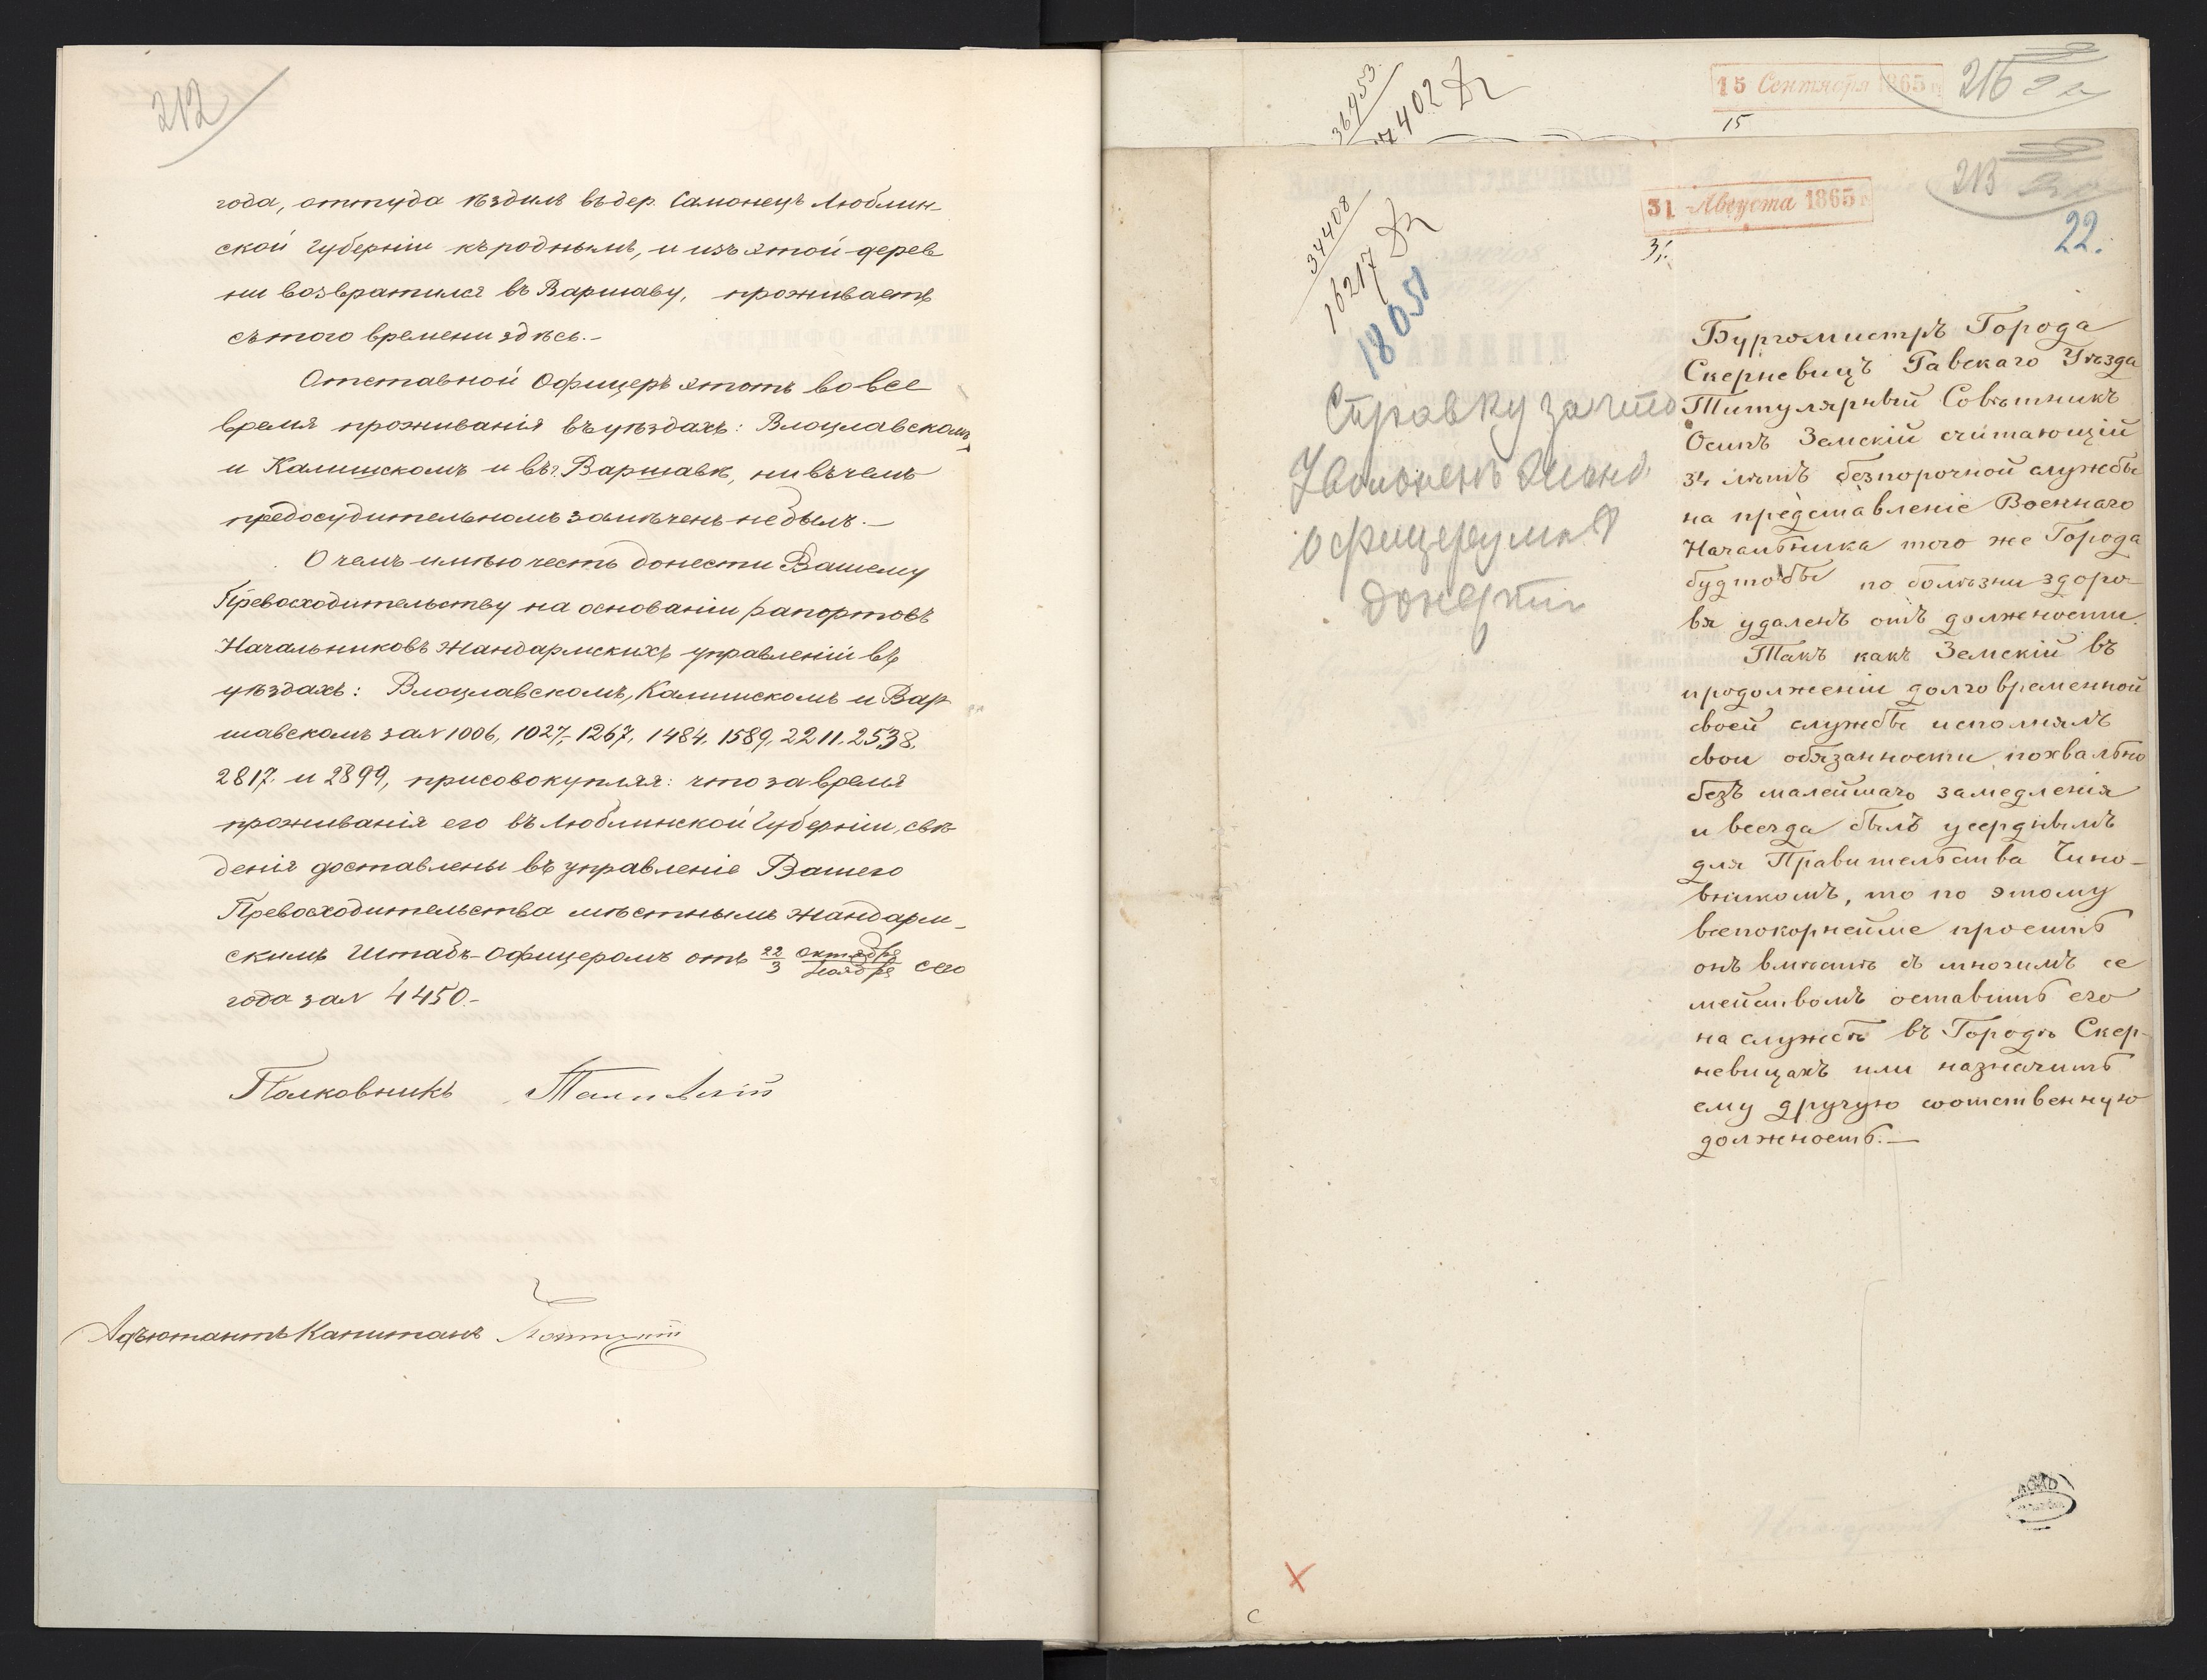 212
года, оттуда ѣздилъ въ дер. Самонецъ Люблин-
ской губерніи къ роднымъ, и изъ этой дерев
ни возвратился въ Варшаву, проживаетъ
съ того времени здѣсь.-
Отставной Офицеръ этотъ во все
время проживанія въ уѣздахъ: Влоцлавскомъ
и Калишскомъ и въ г. Варшавѣ, ни въ чемъ
предосудительномъ замѣченъ не былъ.-
О чемъ имѣю честь донести Вашему
Превосходительству на основаніи рапортовъ
Начальниковъ Жандармскихъ управленій въ
уѣздахъ: Влоцлавскомъ, Калишскомъ и Вар
шавскомъ за № 1006, 1027, 1267, 1484, 1589, 2211, 2538,
2817 и 2899, присовокупляя: что за время
проживанія его въ Люблинской Губерніи, свѣ-
денія доставлены въ управленіе Вашего
Превосходительства мѣстнымъ жандарм-
скимъ Штабъ-Офицеромъ отъ 22/3 Октября/Ноября сего
года за № 4450.-
Полковникъ
Адъютантъ Капитанъ
36953
17402
15 Сентября 1865 г.
15
216
34408
16217
18051
31 Августа 1865 г.
31
213
22.
Справку за что
Уволенъ Жанд.
офицеру
донести
Бургомистръ Города
Скерневицъ Равскаго Уѣзда
Титулярный Совѣтникъ
Осипъ Земскій считающій
34 лѣтъ безпорочной службы
на представленіе Военнаго
Начальника того же Города
будто бы по болѣзни здоро-
вя удаленъ отъ должности.
Такъ какъ Земскій въ
продолженіи долговременной
своей службы исполнялъ
свои обязанности похвально
безъ малейшаго замедленія
и всегда былъ усерднымъ
для Правительства Чино-
вникомъ, то по этому
всепокорнейше проситъ
онъ вмѣстѣ съ многимъ се
мействомъ оставить его
на службѣ въ Городѣ Скер-
невицахъ или назначить
ему другую соотственную
должность.-
AGAD